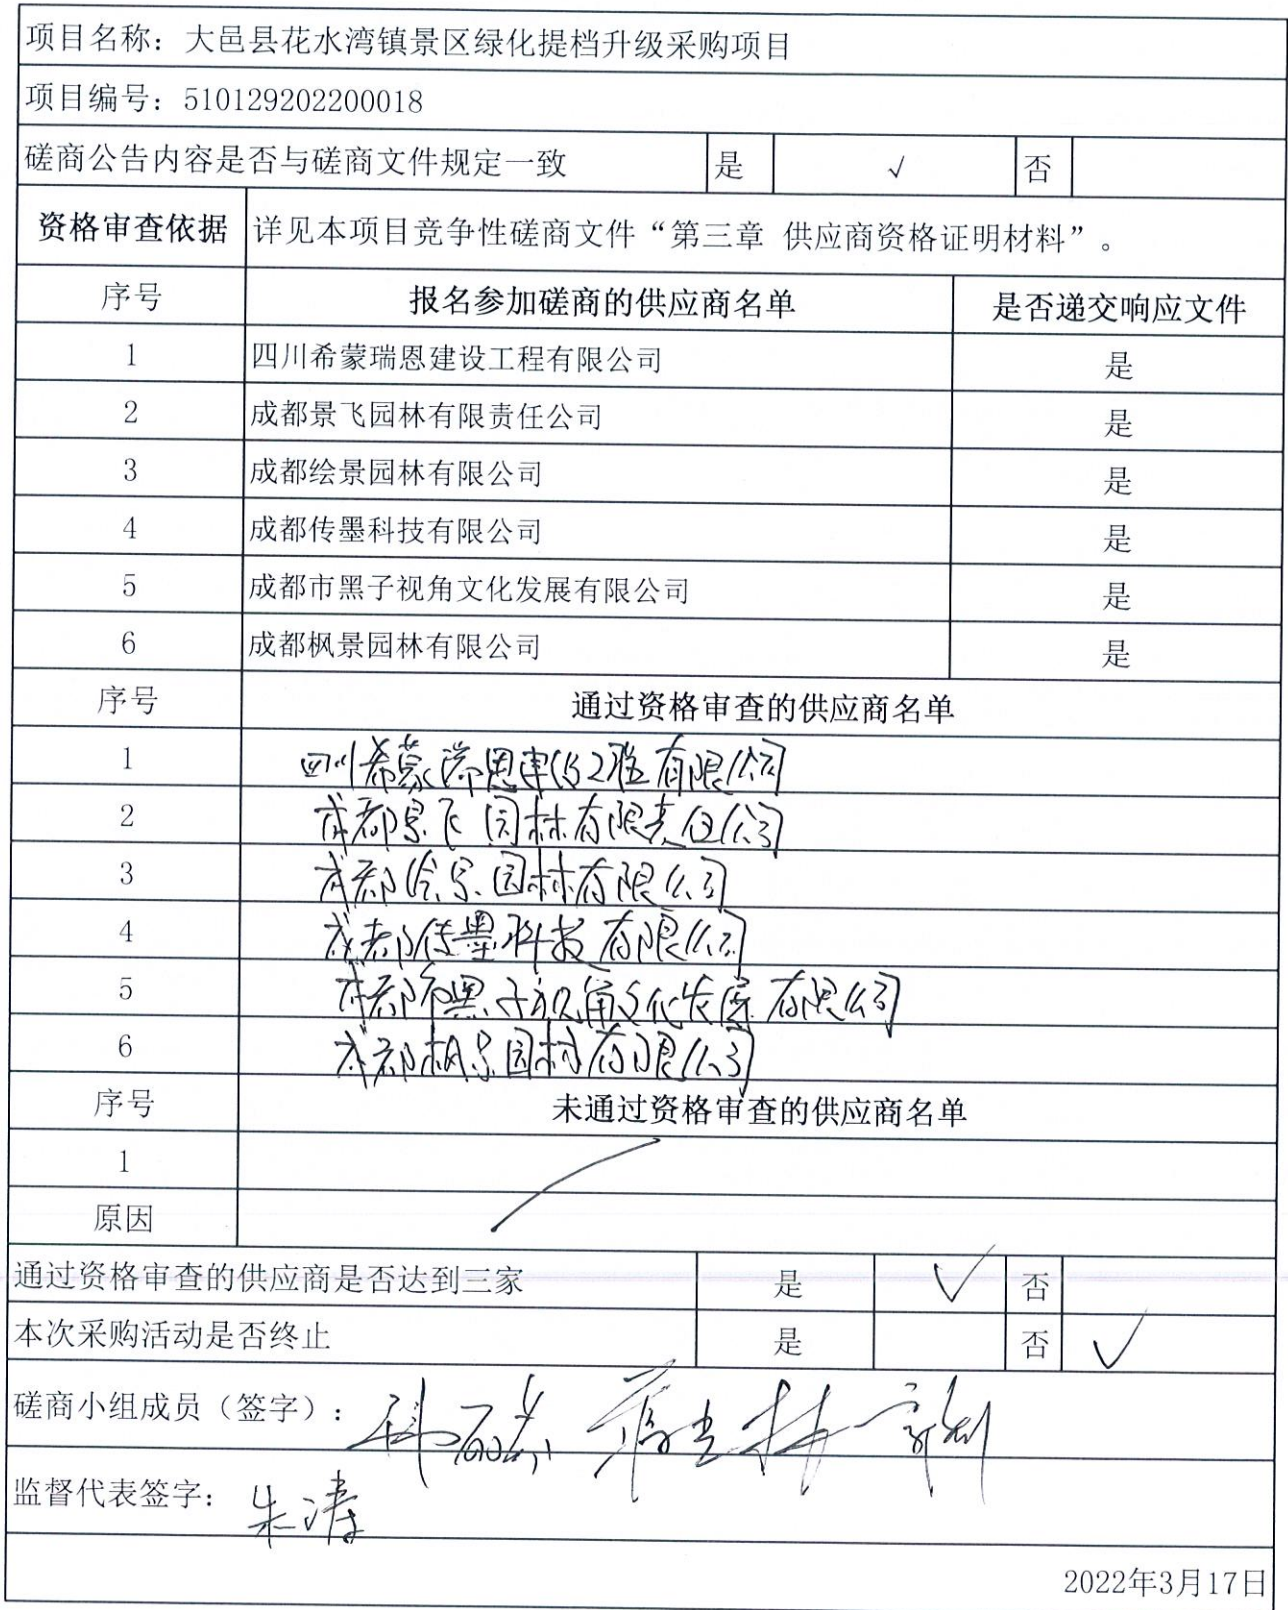 项目名称：大邑县花水湾镇景区绿化提档升级采购项目
项目编号：510129202200018
磋商公告内容是否与磋商文件规定一致 是 √ 否
资格审查依据 详见本项目竞争性磋商文件“第三章 供应商资格证明材料”。
序号 报名参加磋商的供应商名单 是否递交响应文件
1 四川希蒙瑞恩建设工程有限公司 是
2 成都景飞园林有限责任公司 是
3 成都绘景园林有限公司 是
4 成都传墨科技有限公司 是
5 成都市黑子视角文化发展有限公司 是
6 成都枫景园林有限公司 是
序号 通过资格审查的供应商名单
1 四川希蒙瑞恩建设工程有限公司
2 成都景飞园林有限责任公司
3 成都绘景园林有限公司
4 成都传墨科技有限公司
5 成都市黑子视角文化发展有限公司
6 成都枫景园林有限公司
序号 未通过资格审查的供应商名单
1
原因
通过资格审查的供应商是否达到三家 是 √ 否
本次采购活动是否终止 是 否 √
磋商小组成员（签字）：
监督代表签字：朱涛
2022年3月17日